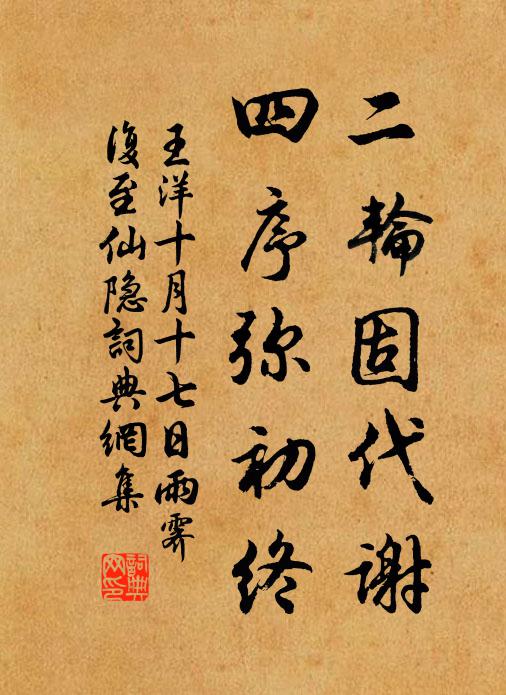 二輪固代謝
四序弥初終
王洋十月十七日雨霽
復至仙隐詞典網集
詞典网印